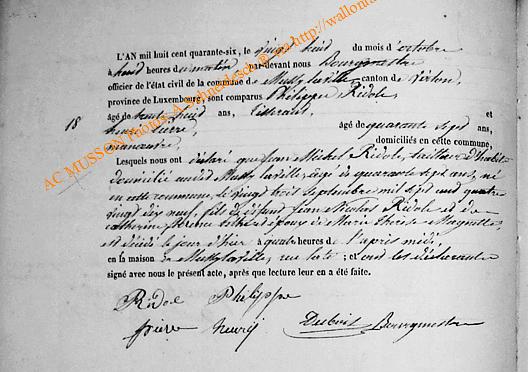 L'AN mil huit cent quarante-six, le vingt huit du mois d'octobre
à huit heures du matin par-devant nous Bourgmestre
officier de l'état civil de la commune de Mussy la ville canton de Virton,
province de Luxembourg, sont comparus Philippe Ridole
âgé de trente huit ans, et
18
âgé de quarante sept ans,
manoeuvre domiciliés en cette commune,
Lesquels nous ont déclaré que Jean Michel Ridole,
domicilié audit Mussy la ville, âgé de quarante sept ans, né
en cette commune le vingt trois septembre mil sept cent quatre
vingt dix neuf, fils de défunt Jean Nicolas Ridole et de
catherine et époux de Marie Thérèse Magnette
est décédé le jour d'hier à quatre heures de l'après midi,
en la maison de Mussy la ville, rue ; et ont les déclarants
signé avec nous le présent acte, après que lecture leur en a été faite.
Ridole Philippe
Dubois Bourgmestre
AC MUSSON Photos A. Schneidesch © via http://wallonia